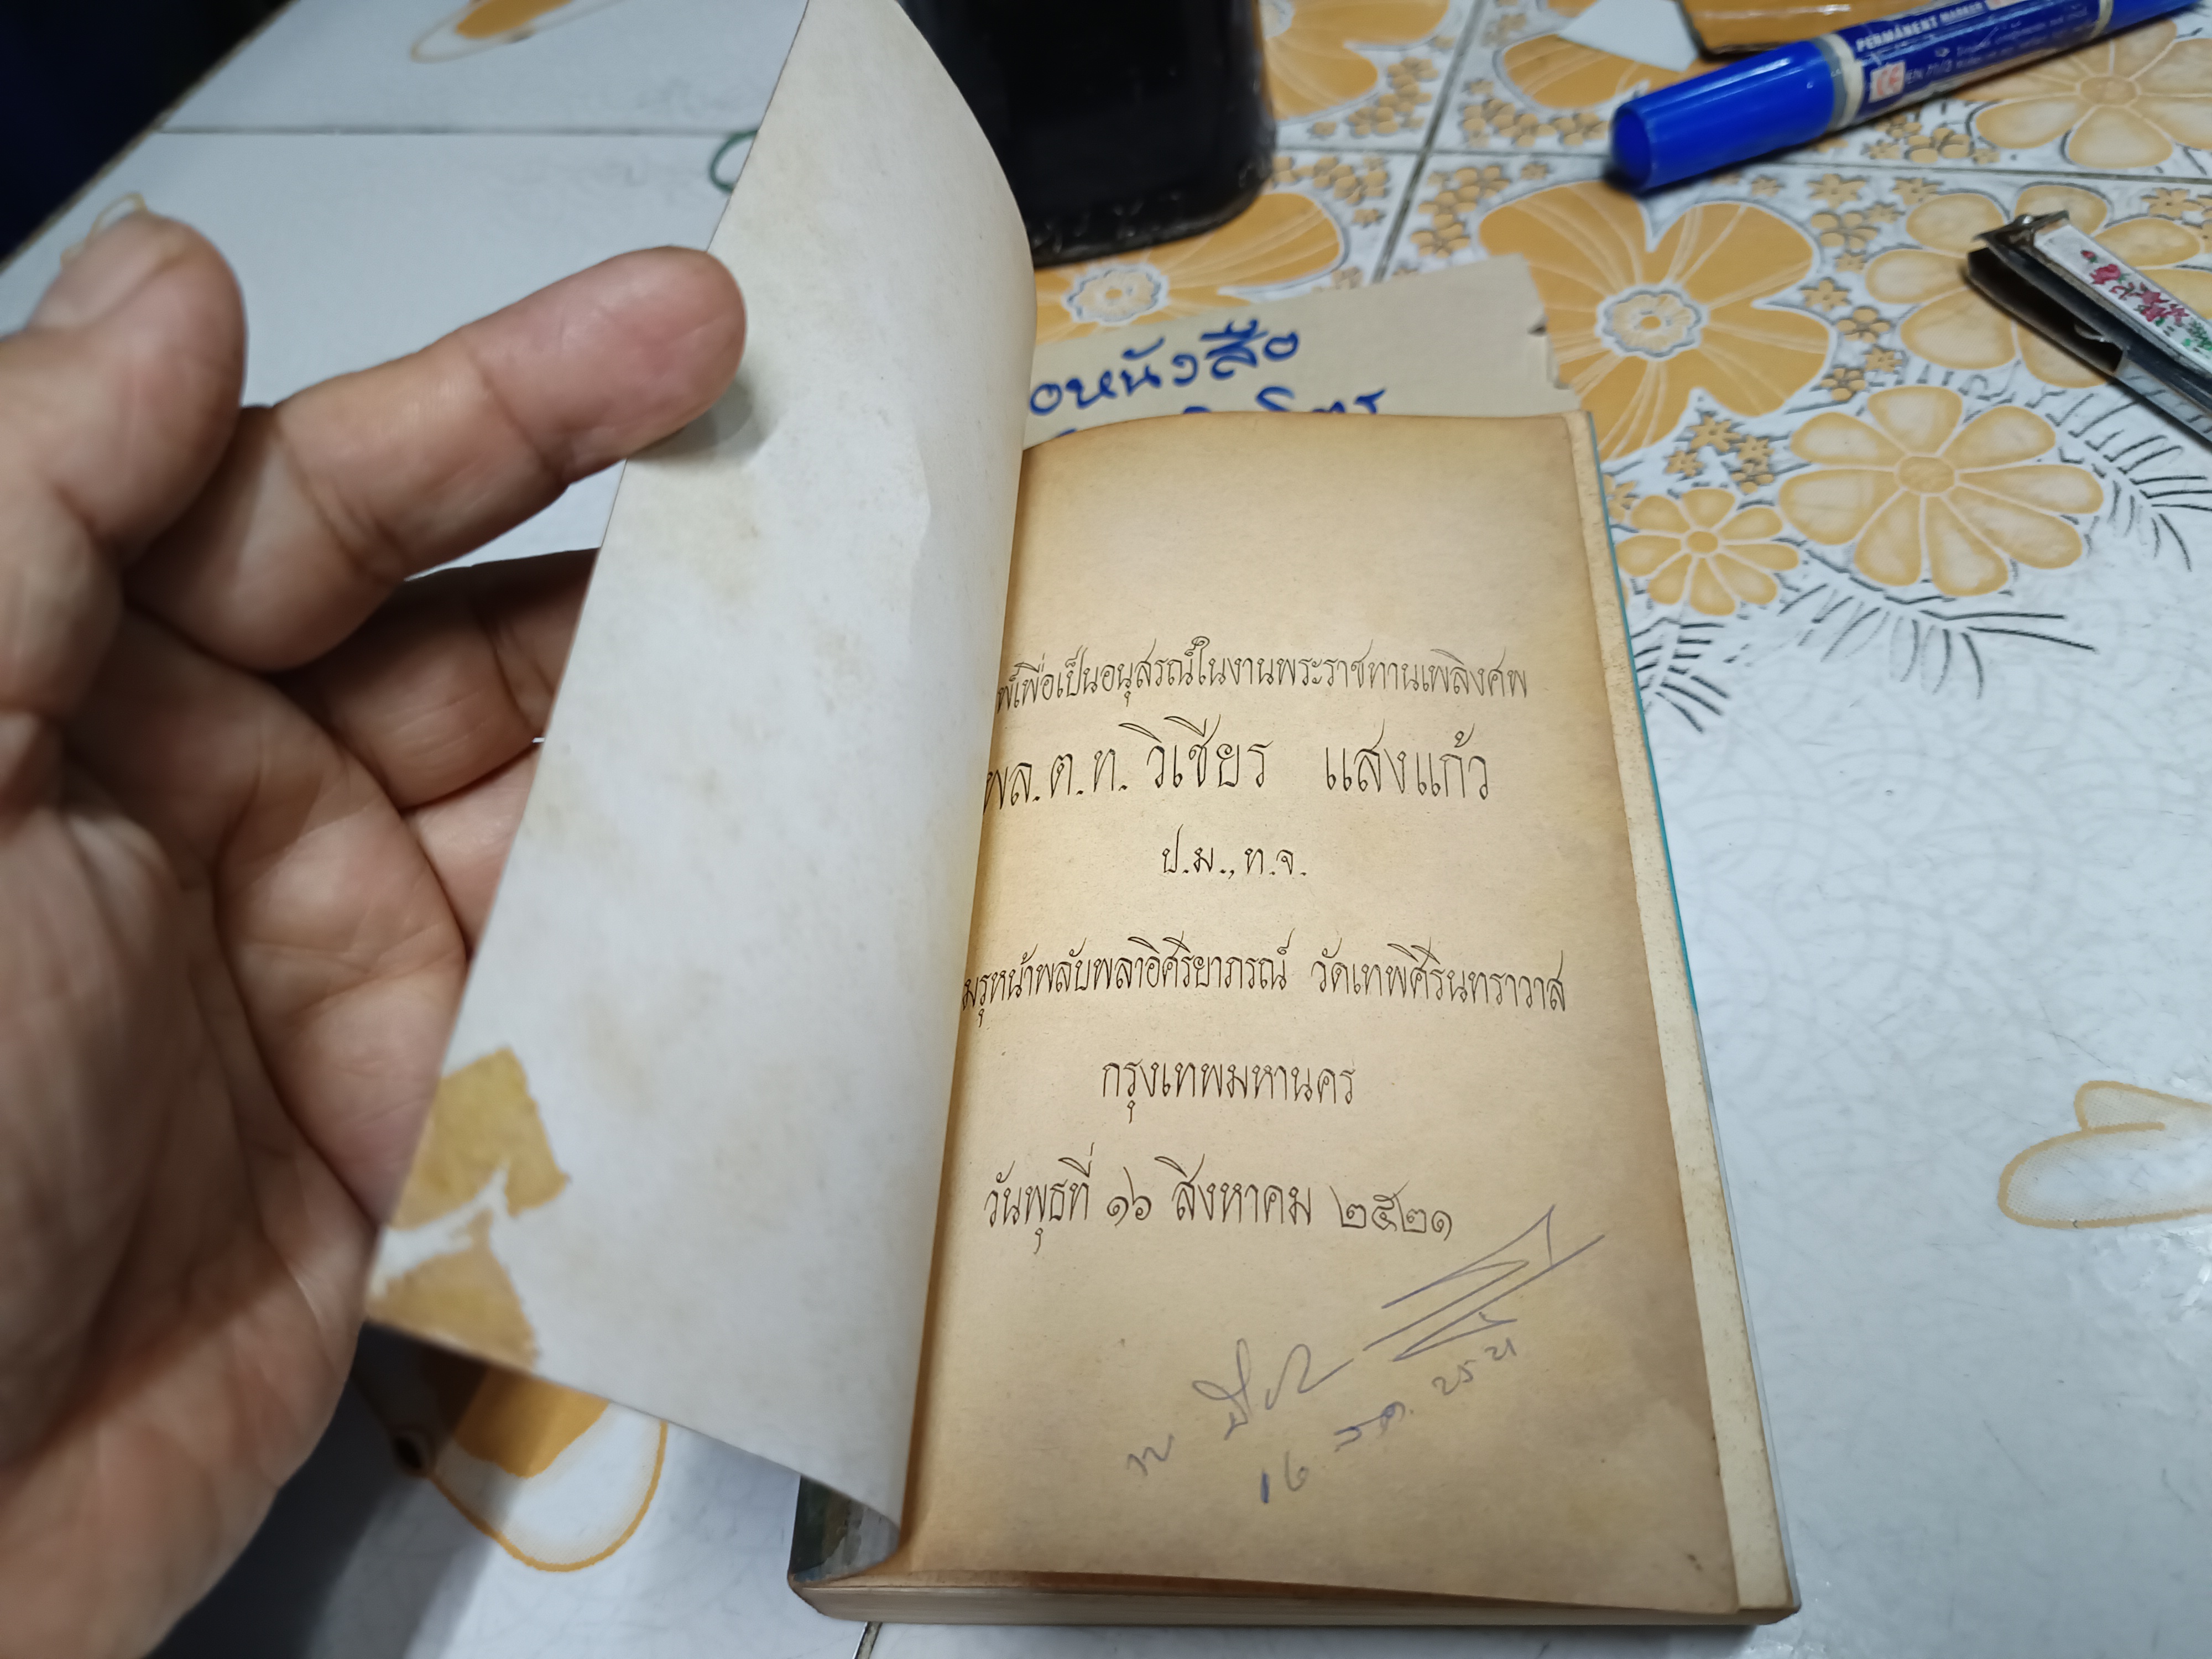 PERMANENT MARKER
อหนังสือ
พ์เพื่อเป็นอนุสรณ์ในงานพระราชทานเพลิงศพ
พล.ต.ท. วิเชียร แสงแก้ว
ป.ม., ท.จ.
มรุหน้าพลับพลาอิศริยาภรณ์ วัดเทพศิรินทราวาส
กรุงเทพมหานคร
วันพุธที่ ๑๖ สิงหาคม ๒๕๒๑